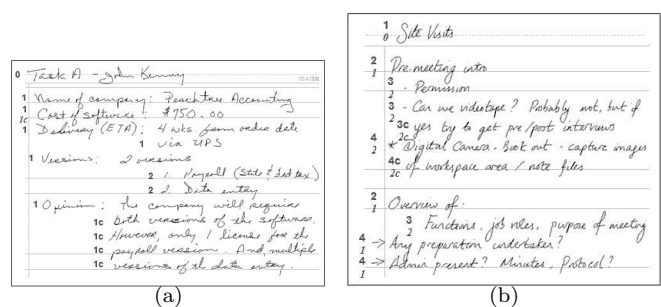 0 Task A - John Kenny
1 Name of company: Peachtree Accounting
1c Cost of software: $750.00
1 Delivery (ETA): 4 wks. from order date
1 via UPS
1 Versions: 2 versions
2 1. Payroll (State & Fed tax)
2 2. Data entry
1 Opinion: The company will require
1c both versions of the software.
1c However, only 1 license for the
1c payroll version. And, multiple
1c versions of the data entry.
(a)
1 0 Site Visits
2 1 Pre-meeting intro
3 2 - Permission
3 2 - Can we videotape? Probably not, but if
3c 2c yes try to get pre/post interviews
4 2 * Digital Camera - Book out - capture images
4c 2c of workspace area / note files
2 1 Overview of:
3 2 Functions, job roles, purpose of meeting
4 1 → Any preparation undertaken?
4 1 → Admin present? Minutes, Protocol?
(b)